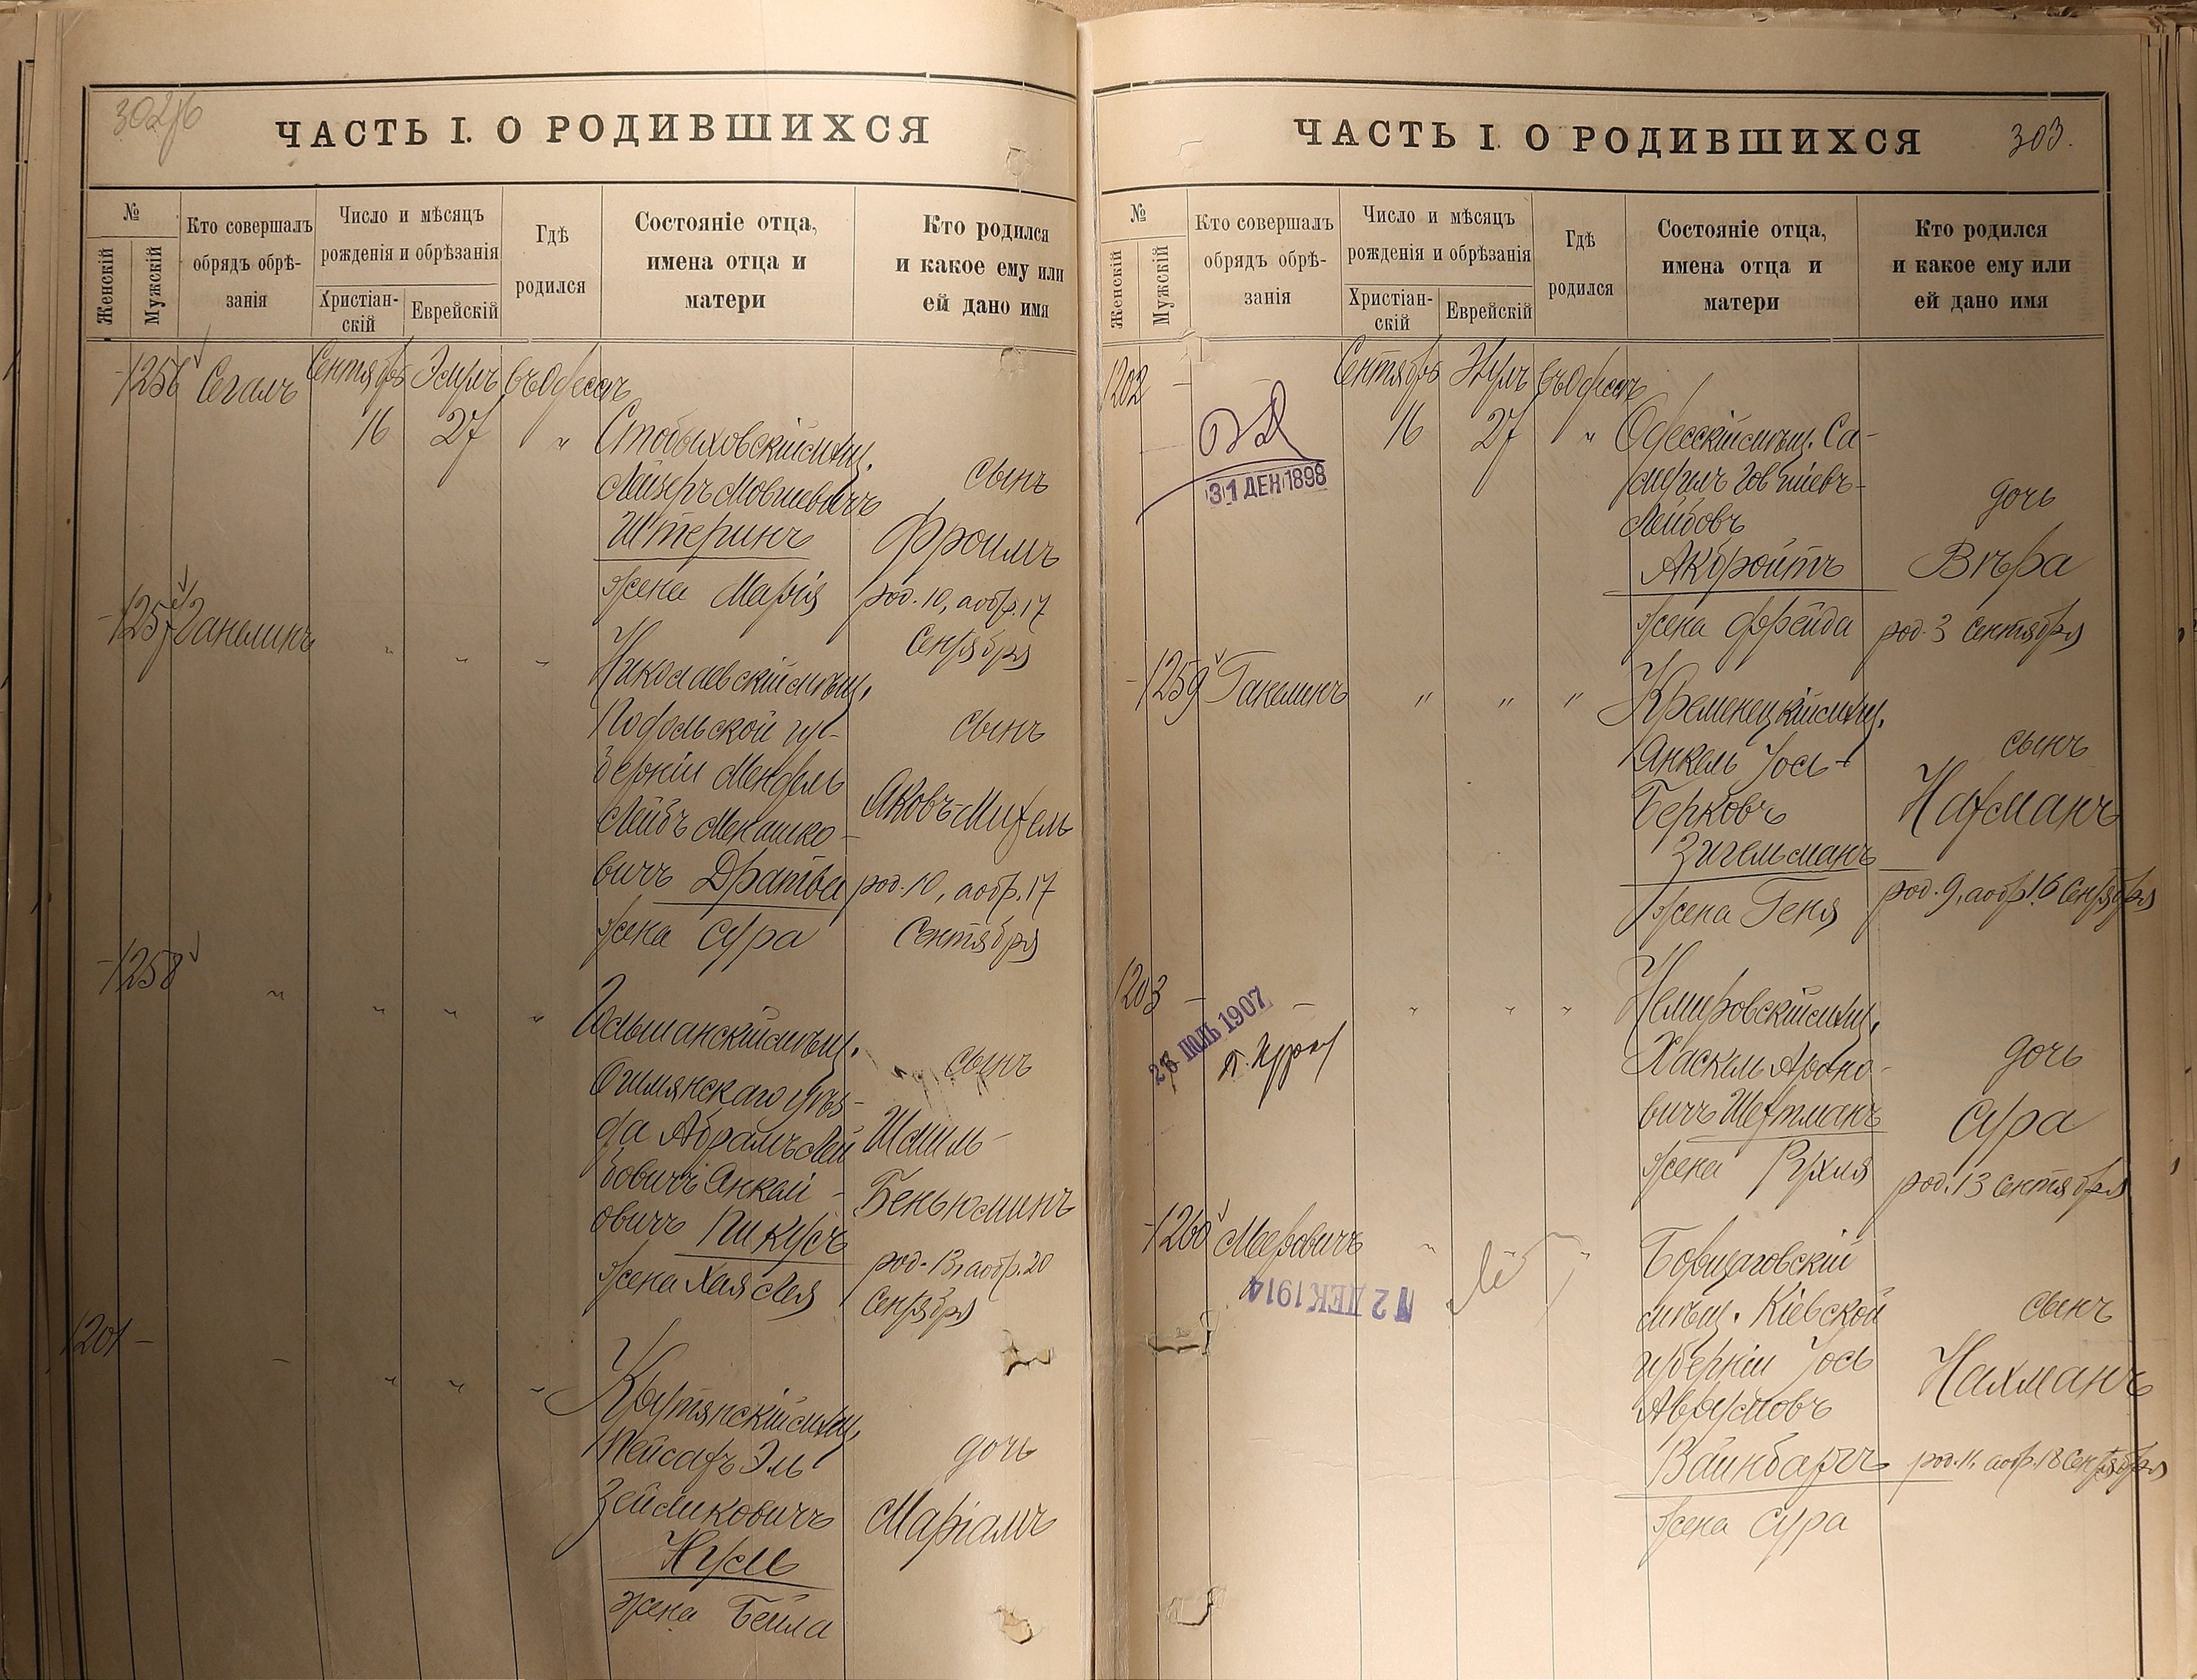 302об
ЧАСТЬ I. О РОДИВШИХСЯ
№
Женскій
Мужскій
Кто совершалъ
обрядъ обрѣ-
занія
Число и мѣсяцъ
рожденія и обрѣзанія
Христіан-
скій
Еврейскій
Гдѣ
родился
Состояніе отца,
имена отца и
матери
Кто родился
и какое ему или
ей дано имя
1256 Сегалъ Сентябрь Элулъ въ Одессѣ
16 27 "
Стобыховскій мѣщ.
Лейзеръ Мовшевичъ
Штеринъ
жена Марія
сынъ
Фроимъ
род. 10, а обр. 17
Сентября
1257 Ганелинъ " " "
Николаевскій мѣщ.
Подольской гу-
берніи Мендель
Лейбъ Менашко-
вичъ Дратва
жена Сура
сынъ
Яковъ-Михель
род. 10, а обр. 17
Сентября
1258 " " " "
Гольшанскій мѣщ.
Ошмянскаго уѣз-
да Абрамъ Лей
бовичъ Янкай-
овичъ Пикусъ
жена Хая Лея
сынъ
Шмиль-
Беньюминъ
род. 13, а обр. 20
Сентября
1201 - - " " "
Крутянскій мѣщ.
Пейсахъ Эль
Зейликовичъ
Нусь
жена Бейла
дочь
Маріамъ
ЧАСТЬ I. О РОДИВШИХСЯ
303.
№
Женскій
Мужскій
Кто совершалъ
обрядъ обрѣ-
занія
Число и мѣсяцъ
рожденія и обрѣзанія
Христіан-
скій
Еврейскій
Гдѣ
родился
Состояніе отца,
имена отца и
матери
Кто родился
и какое ему или
ей дано имя
1202 - Сентябрь Элулъ въ Одессѣ
16 27 "
31 ДЕК 1898
Одесскій мѣщ. Са-
Лейбовъ
Акброитъ
жена Фрейда
дочь
Вѣра
род. 3 Сентября
1259 Ганелинъ " " "
Кременецкій мѣщ.
Янкель Іось-
Берковъ
Зигельманъ
жена Геня
сынъ
Нахманъ
род. 9, а обр. 16 Сентября
1203 - - " " "
ІЮЛЬ 1907
Немировскій мѣщ.
Хаскель Ароно-
вичъ Шехтманъ
жена Рухля
дочь
Сура
род. 13 Сентября
1260 Меровичъ " "
12 ДЕК 1914
Борщаговскій
мѣщ. Кіевской
губерніи Іось
Аврумовъ
Вайнбаргъ
жена Сура
сынъ
Нахманъ
род. 11, а обр. 18 Сентября